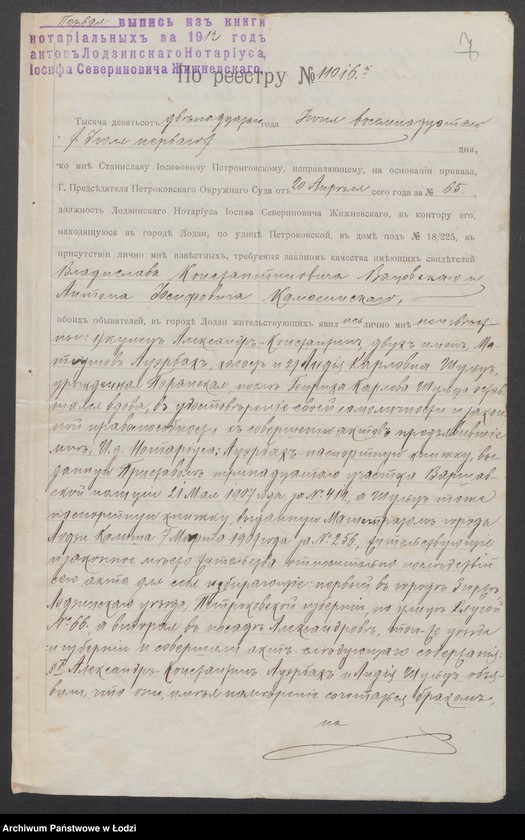 Первая выпись изъ книги
нотаріальныхъ за 1912 годъ
актовъ Лодзинскаго Нотаріуса,
Іосифа Севериновича Жижневскаго.
7
По реестру № 11016.
Тысяча девятьсотъ двѣнадцатаго года Іюня восемнадцатаго
/ Іюля перваго / дня,
ко мнѣ Станиславу Іосифовичу Петронговскому, исправляющему, на основаніи приказа,
Г. Предсѣдателя Петроковскаго Окружнаго Суда отъ 20 Апрѣля сего года за № 65,
должность Лодзинскаго Нотаріуса Іосифа Севериновича Жижневскаго, въ контору его,
находящуюся въ городѣ Лодзи, по улицѣ Петроковской, въ домѣ подъ № 18/225, въ
присутствіи лично мнѣ извѣстныхъ, требуемыя закономъ качества имѣющихъ свидѣтелей
Владислава Константиновича и
Антона Іосифовича
обоихъ обывателей, въ городѣ Лодзи жительствующихъ явились лично мнѣ неизвѣст-
ные: 1) купецъ Александръ-Константинъ, двухъ именъ, Ма-
Ауэрбахъ, холостъ и 2) Лидія Карловна Шульцъ,
урожденная послѣ Генриха Карлова Шульца остав-
шаяся вдова, въ удостовѣреніе своей самоличности и закон-
ной правоспособности къ совершенію актовъ предъявившіе
мнѣ, И.д. Нотаріуса: Ауэрбахъ паспортную книжку, вы-
данную Приставомъ тринадцатаго участка Варшав-
ской полиціи 21 Мая 1907 года за № 419, а Шульцъ тоже
паспортную книжку, выданную Магистратомъ города
Марта 1909 года за № 256, жительствующіе
и законное мѣсто жительства относительно послѣдствій
сего акта для себя избирающіе: первый въ городѣ Згержѣ
Лодзинскаго уѣзда, Петроковской губерніи, по улицѣ Длугой
№ 66, а вторая въ посадѣ Александровъ, того-же уѣзда
и губерніи и совершили актъ слѣдующаго содержанія:
Александръ-Константинъ Ауэрбахъ и Лидія Шульцъ объя-
вили, что они, имѣя намѣреніе сочетаться бракомъ,
на
Archiwum Państwowe w Łodzi